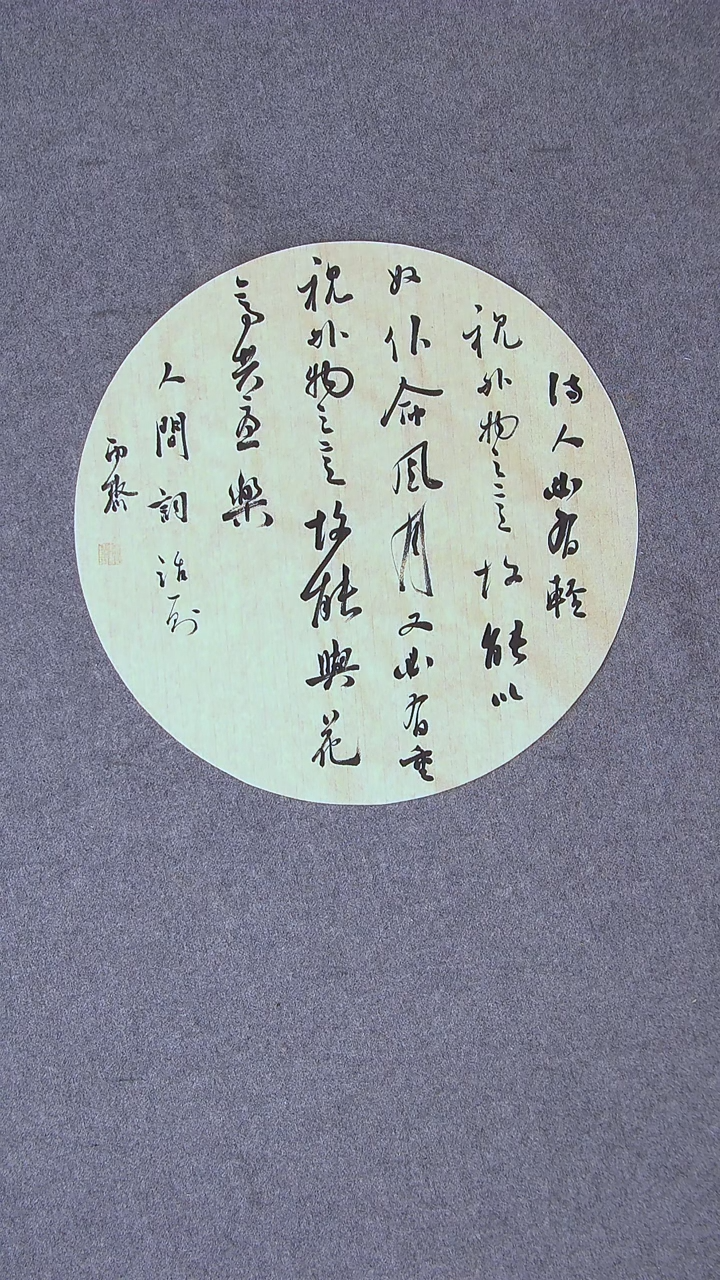 詩人必有輕
視外物之意故能以
奴仆命風月又必有重
視外物之意故能與花
鳥共憂樂
人間詞話一則
齋